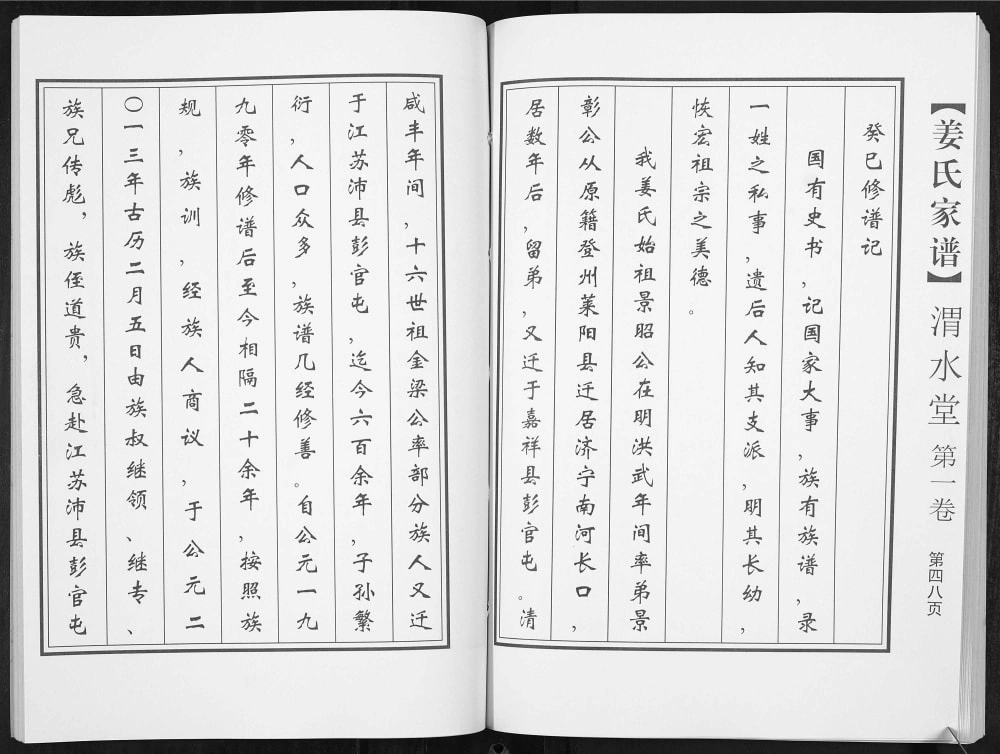 【姜氏家谱】渭水堂 第一卷 第四八页
癸巳修谱记
国有史书，记国家大事，族有族谱，录
一姓之私事，遗后人知其支派，明其长幼，
恢宏祖宗之美德。
我姜氏始祖景昭公在明洪武年间率弟景
彰公从原籍登州莱阳县迁居济宁南河长口，
居数年后，留弟，又迁于嘉祥县彭官屯。清
咸丰年间，十六世祖金梁公率部分族人又迁
于江苏沛县彭官屯，迄今六百余年，子孙繁
衍，人口众多，族谱几经修善。自公元一九
九零年修谱后至今相隔二十余年，按照族
规，族训，经族人商议，于公元二
〇一三年古历二月五日由族叔继领、继专、
族兄传彪，族侄道贵，急赴江苏沛县彭官屯